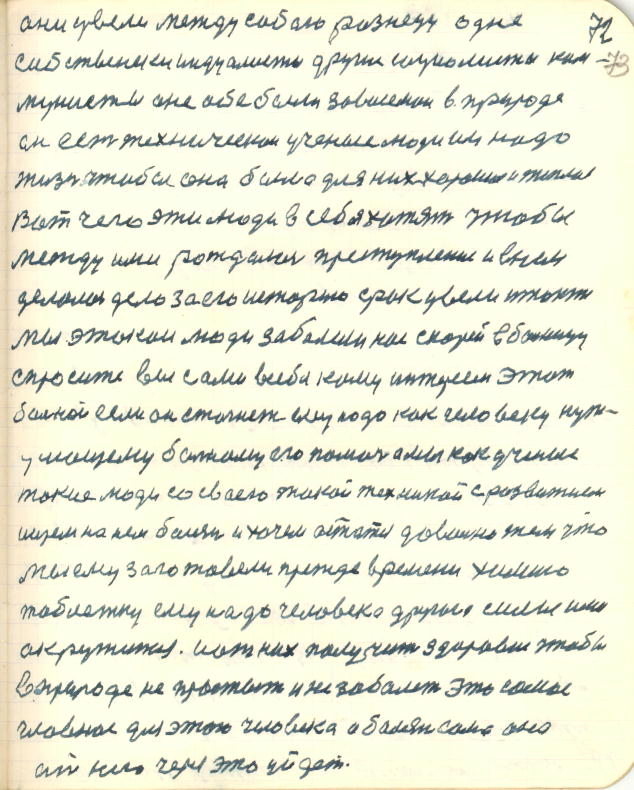 72
они увели между собою разнецу одне
собственеки индуалисты другие социолисты ком-
73
мунисты оне обе были зависемои в природе
он сет технической ученые люди им надо
жизн чтобы она была для них хорошие и теплые
Вот чего эти люди в себя хотят чтобы
между ими рождался преступление и в нем
делолся дело за его историю срок увели
мы этокои люди заболели нас скорей в болницу
спросите вы сами в себя кому интересен этот
болной если он стогнет ему надо как человеку нуж-
дающему болному его помоч а мы как ученые
токие люди со своею такой техникой с розвитием
ищем на нем болезн и хочем астатся довольно тем что
мы ему заготовели прежде времени химию
таблетку ему надо человека другоя силы или
окружится. и от них получит здоровие чтобы
в природе не простыт и не заболет это самое
главное для этого человека а болезн сама она
от него через это уйдет.